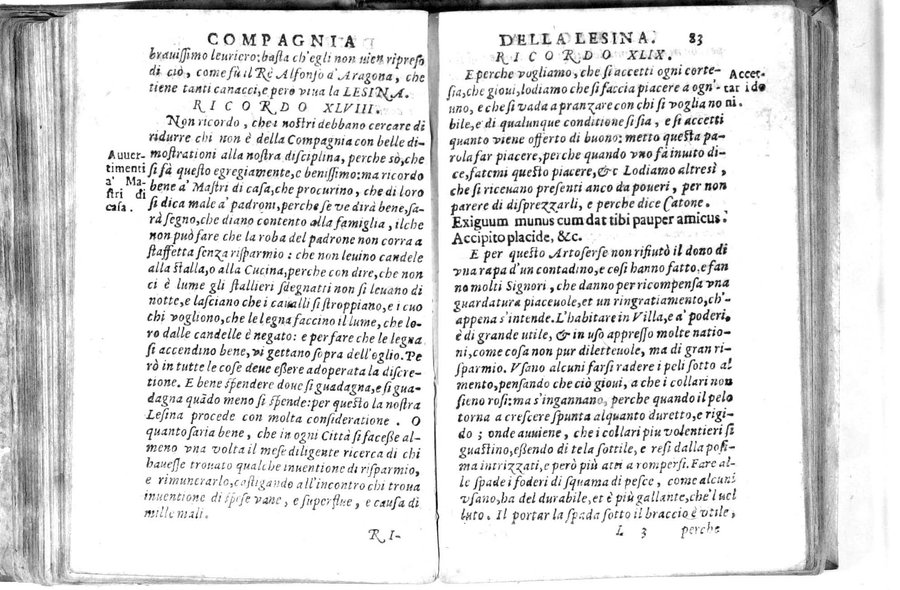 COMPAGNIA
brauissimo leuriero: basta ch'egli non uien ripreso
di ciò, come fù il Rè Alfonso d'Aragona, che
tiene tanti canacci, e però viua la LESINA.
RICORDO XLVIII.
Non ricordo, che i nostri debbano cercare di
ridurre chi non è della Compagnia con belle di-
mostrationi alla nostra disciplina, perche sò, che
si fà questo egregiamente, e benissimo: ma ricordo
bene a' Mastri di casa, che procurino, che di loro
si dica male a' padroni, perche se ve dirà bene, sa-
rà segno, che diano contento alla famiglia, ilche
non può fare che la roba del padrone non corra a
staffetta senza risparmio: che non leuino candele
alla stalla, o alla Cucina, perche con dire, che non
ci è lume gli stallieri sdegnatti non si leuano di
notte, e lasciano che i caualli si stroppiano, e i cuo
chi vogliono, che le legna faccino il lume, che lo-
ro dalle candelle è negato: e per fare che le legna
si accendino bene, vi gettano sopra dell'oglio. Pe
rò in tutte le cose deue essere adoperata la discre-
tione. E bene spendere doue si guadagna, e si gua-
dagna quãdo meno si spende: per questo la nostra
Lesina procede con molta consideratione. O
quanto saria bene, che in ogni Città si facesse al-
meno vna volta il mese diligente ricerca di chi
hauesse trouato qualche inuentione di risparmio,
e rimunerarlo, castigando all'incontro chi troua
inuentione di spese vane, e superflue, e causa di
mille mali.
Auuer-
timenti
a' Ma-
stri di
casa.
R I-
DELLA LESINA. 83
RICORDO XLIX.
E perche vogliamo, che si accetti ogni corte-
sia, che gioui, lodiamo che si faccia piacere a ogn'-
uno, e che si vada a pranzare con chi si voglia no
bile, e di qualunque conditione si sia, e si accetti
quanto viene offerto di buono: metto questa pa-
rola far piacere, perche quando vno fà inuito di-
ce, fatemi questo piacere, &c Lodiamo altresì,
che si riceuano presenti anco da poueri, per non
parere di disprezzarli, e perche dice Catone.
Exiguum munus cum dat tibi pauper amicus.
Accipito placide, &c.
E per questo Artoserse non rifiutò il dono di
vna rapa d'un contadino, e cosi hanno fatto, e fan
no molti Signori, che danno per ricompensa vna
guardatura piaceuole, et un ringratiamento, ch'-
appena s'intende. L'habitare in Villa, e a' poderi,
è di grande utile, & in uso appresso molte natio-
ni, come cosa non pur diletteuole, ma di gran ri-
sparmio. Vsano alcuni farsi radere i peli sotto al
mento, pensando che ciò gioui, a che i collari non
sieno rosi; ma s'ingannano, perche quando il pelo
torna a crescere spunta alquanto duretto, e rigi-
do; onde auuiene, che i collari piu volentieri si
guastino, essendo di tela sottile, e resi dalla posi-
ma intrizzati, e però più atti a rompersi. Fare al-
le spade i foderi di squama di pesce, come alcuni
vsano, ha del durabile, et è più gallante, che'l uel
luto. Il portar la spada sotto il braccio è vtile,
Accet-
tar i do
ni.
L 3 perche